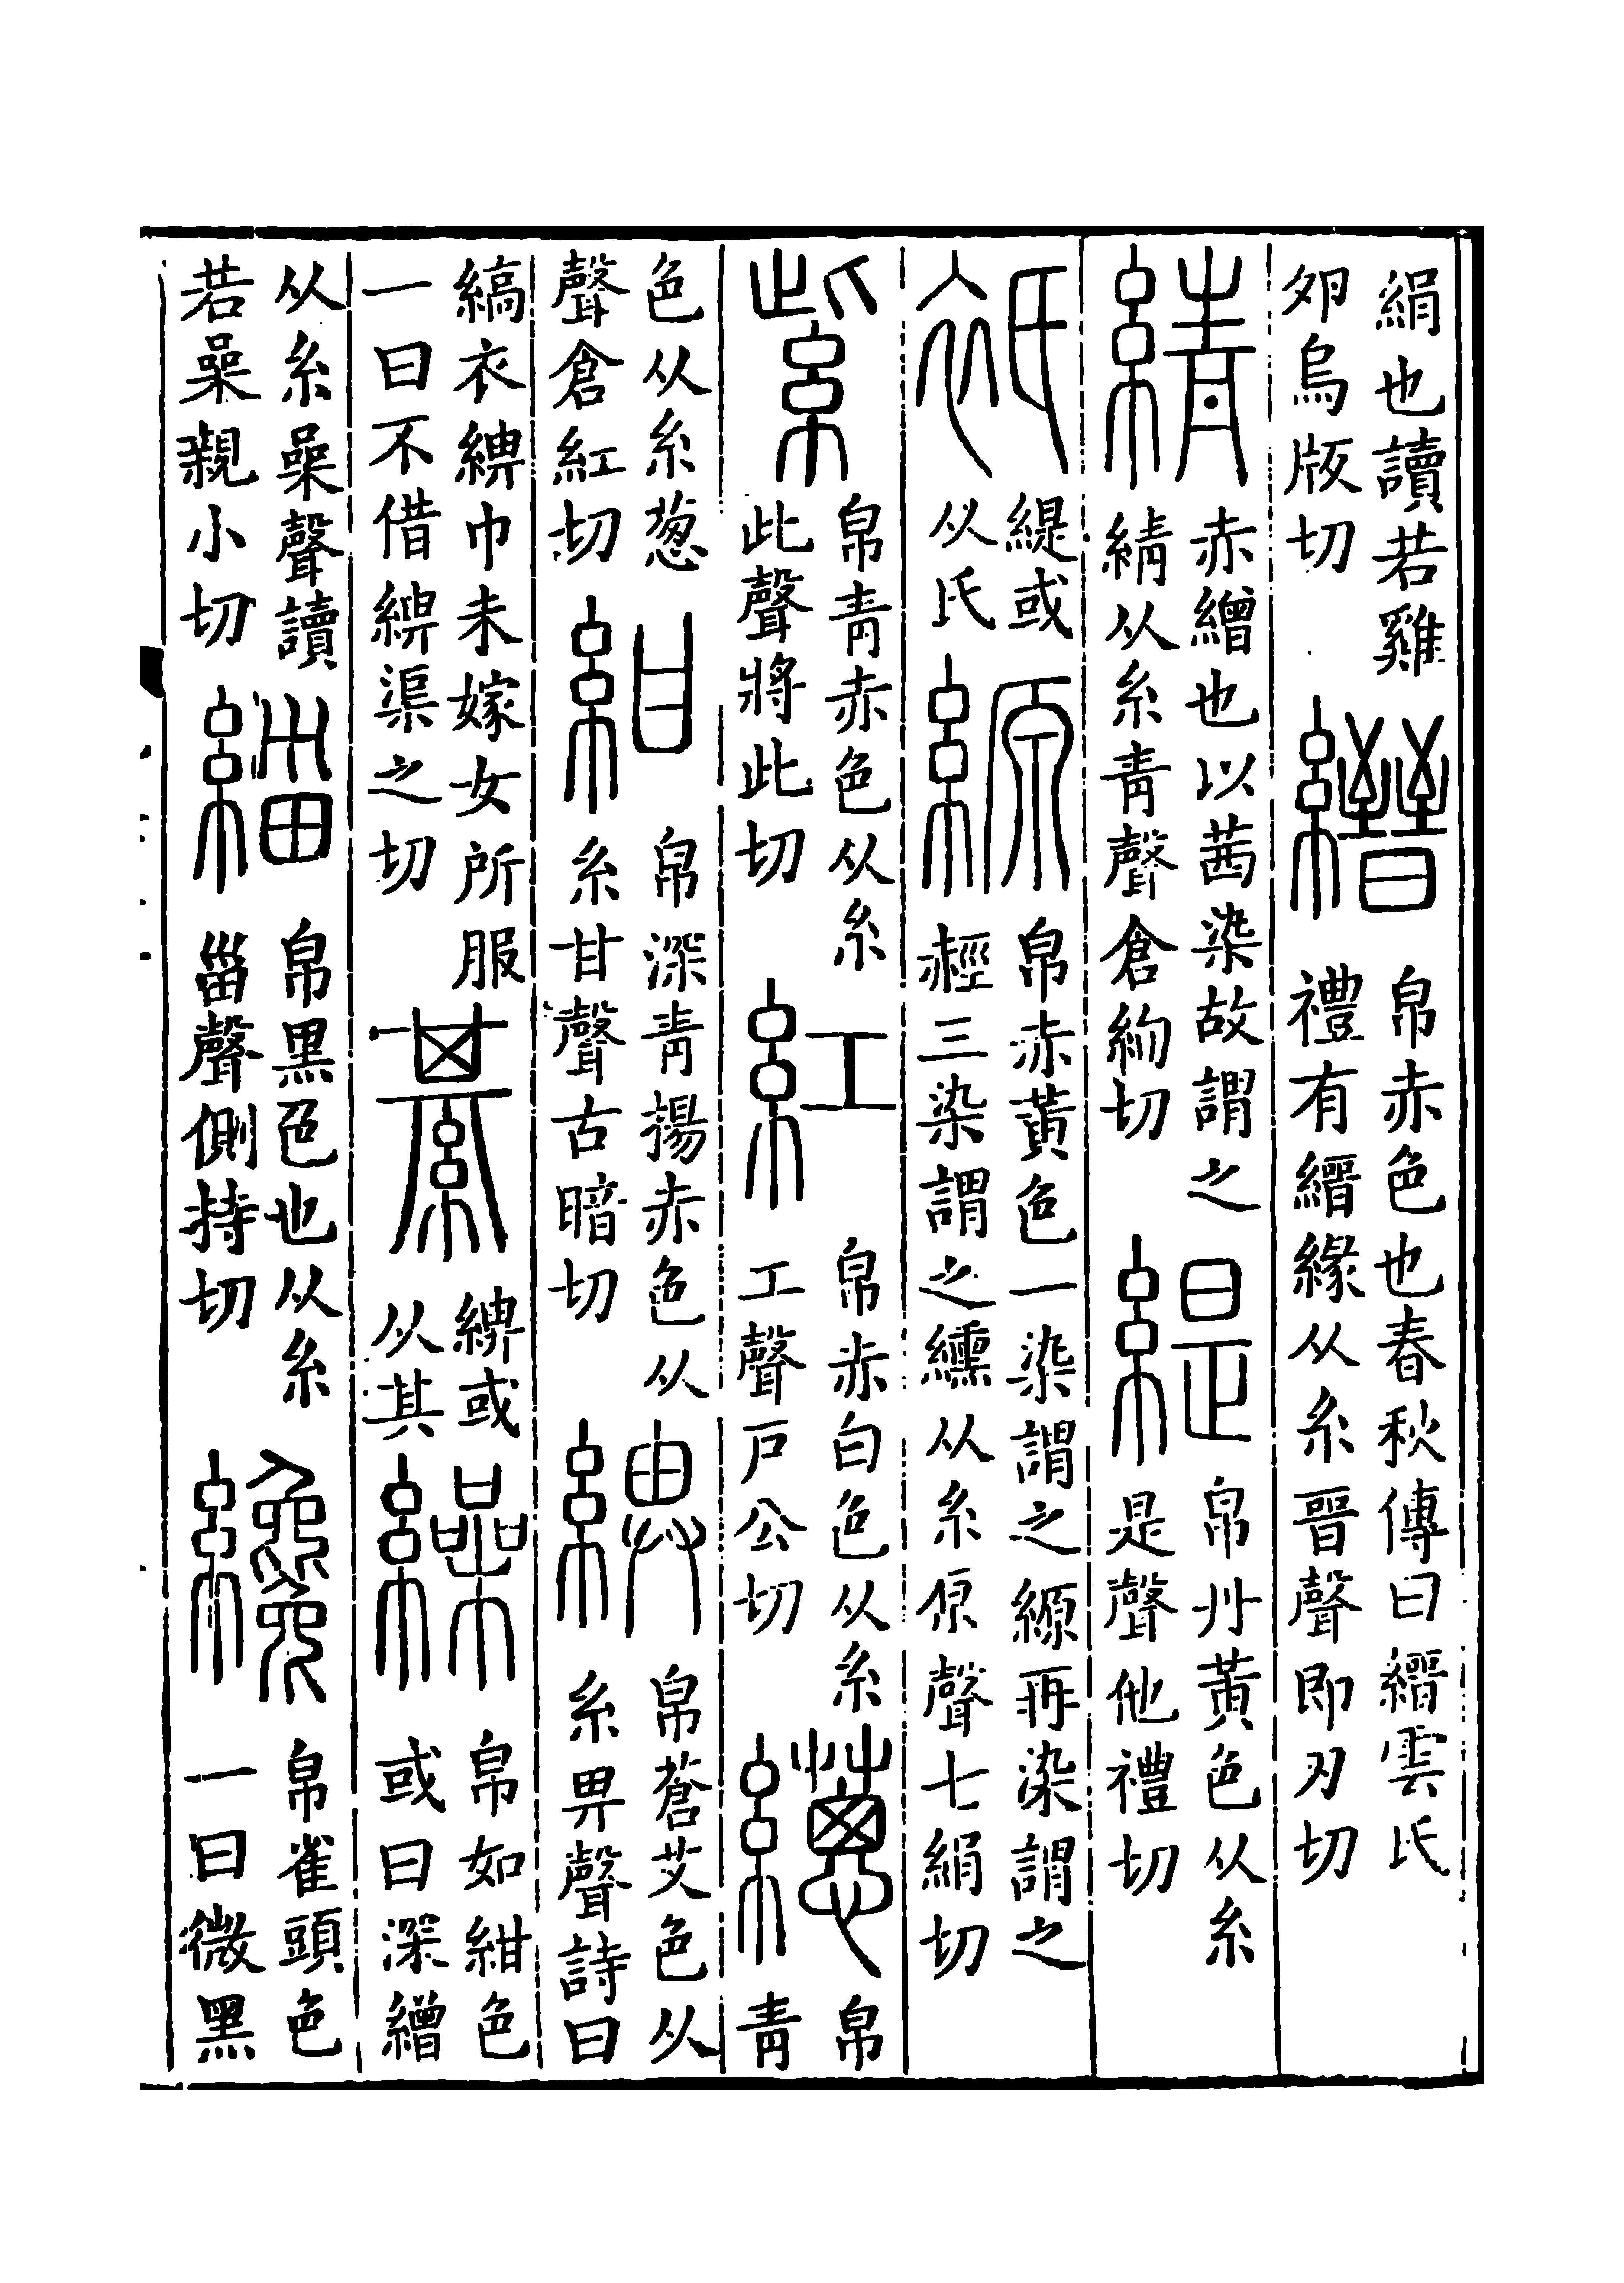 絹也讀若雞夘烏版切縉帛赤色也春秋傳曰縉雲氏禮有縉緣从糸晉聲即刃切
綪赤繒也以茜染故謂之綪从糸青聲倉絢切緹帛丹黃色从糸是聲他禮切
衹緹或从氏縓帛赤黃色一染謂之縓再染謂之䞓三染謂之纁从糸原聲七絹切
紫帛青赤色从糸此聲將此切紅帛赤白色从糸工聲戸公切繱帛青
色从糸蔥聲倉紅切紺帛深青揚赤色从糸甘聲古暗切綼帛蒼艾色从糸畀聲詩曰
縞衣綼巾未嫁女所服一曰不借綼渠之切綦綼或从其繰帛如紺色或曰深繒
从糸喿聲讀若喿親小切緇帛黑色也从糸甾聲側持切纔帛雀頭色一曰微黑